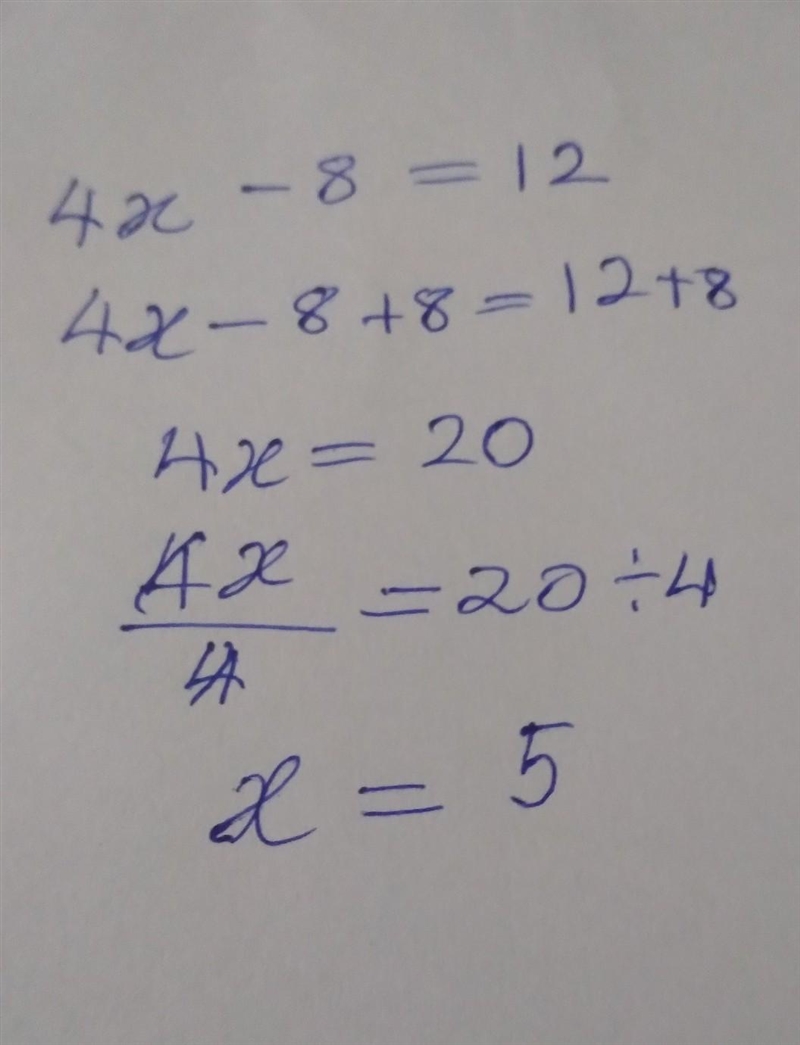 4x - 8 = 12
4x - 8 + 8 = 12 + 8
4x = 20
4x/4 = 20 ÷ 4
x = 5